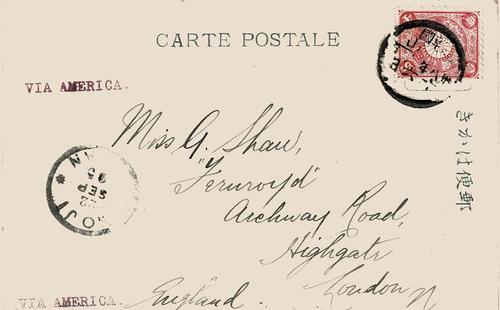 CARTE POSTALE
VIA AMERICA.
Miss G. Shaw,
Archway Road,
Highgate
London N
England.
VIA AMERICA.
郵便はがき
SEP